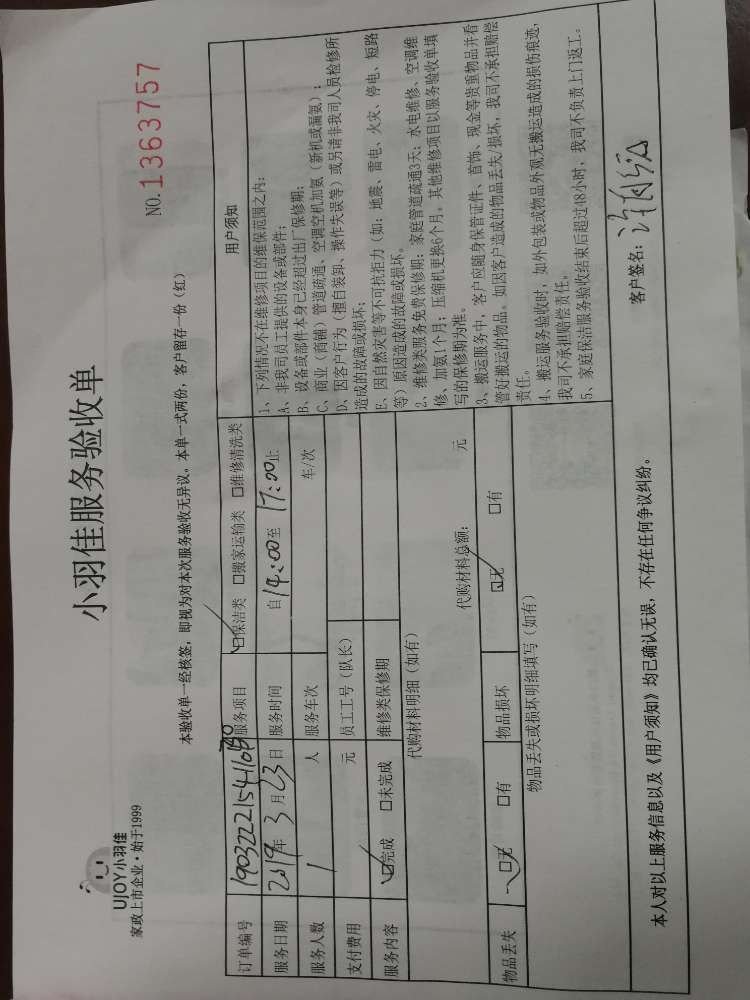 UJOY小羽佳
家政上市企业·始于1999
小羽佳服务验收单
NO.1363757
本验收单一经核签，即视为对本次服务验收无异议。本单一式两份，客户留存一份（红）
订单编号
服务项目 ☑保洁类 □搬家运输类 □维修清洗类
服务日期 2019年3月23日 服务时间 自14:00至17:00止
服务人数 1 人 服务车次 车/次
支付费用 元 员工工号（队长）
服务内容 ☑完成 □未完成 维修类保修期
代购材料明细（如有）
代购材料总额： 元
物品丢失 ☑无 □有 物品损坏 ☑无 □有
物品丢失或损坏明细填写（如有）
用户须知
1、下列情况不在维修项目的维保范围之内：
A、非我司员工提供的设备或部件；
B、设备或部件本身已经超过出厂保修期；
C、商业（商铺）管道疏通、空调空机加氨（新机或漏氨）；
D、因客户行为（擅自装卸、操作失误等）或另请非我司人员检修所
造成的故障或损坏；
E、因自然灾害等不可抗拒力（如：地震、雷电、火灾、停电、短路
等）原因造成的故障或损坏。
2、维修类服务免费保修期：家庭管道疏通3天；水电维修、空调维
修、加氨1个月；压缩机更换6个月。其他维修项目以服务验收单填
写的保修期为准。
3、搬运服务中，客户应随身保管证件、首饰、现金等贵重物品并看
管好搬运的物品。如因客户造成的物品丢失/损坏，我司不承担赔偿
责任。
4、搬运服务验收时，如外包装或物品外观无搬运造成的损伤痕迹，
我司不承担赔偿责任。
5、家庭保洁服务验收结束后超过48小时，我司不负责上门返工。
本人对以上服务信息以及《用户须知》均已确认无误，不存在任何争议纠纷。
客户签名：